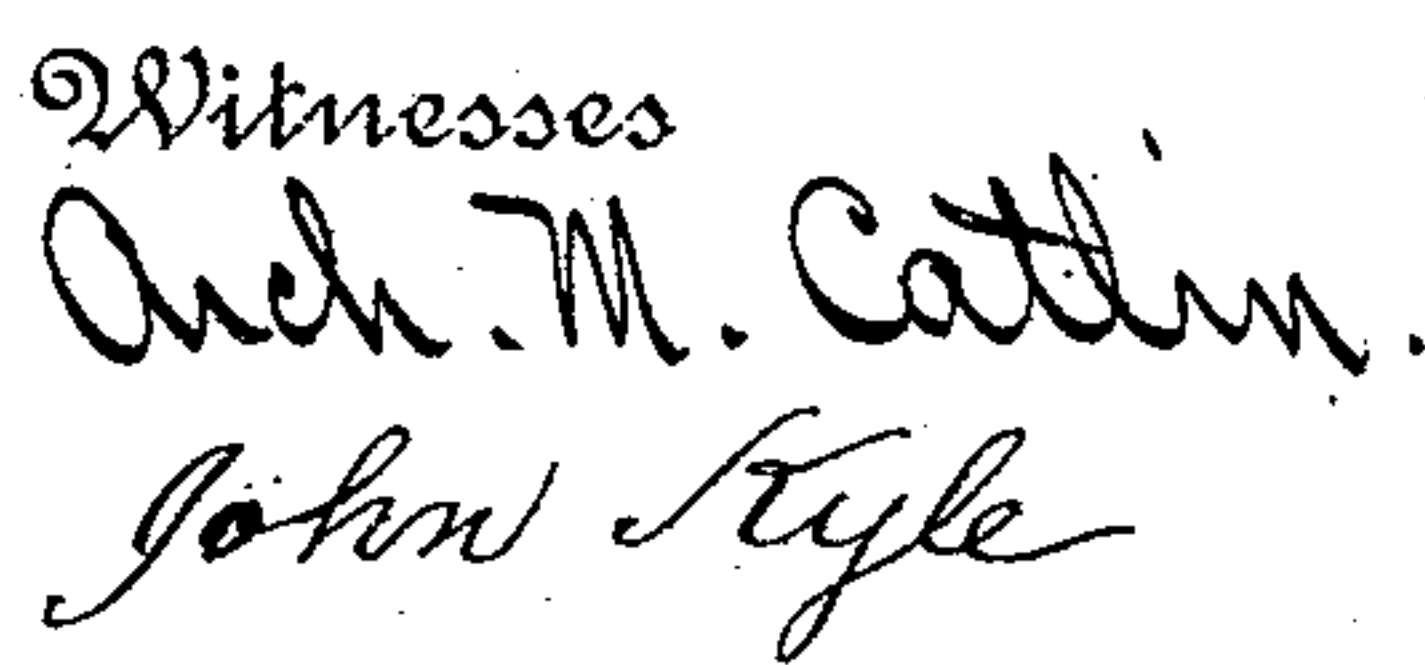 Witnesses
Arch. M. Catlin.
John Kyle